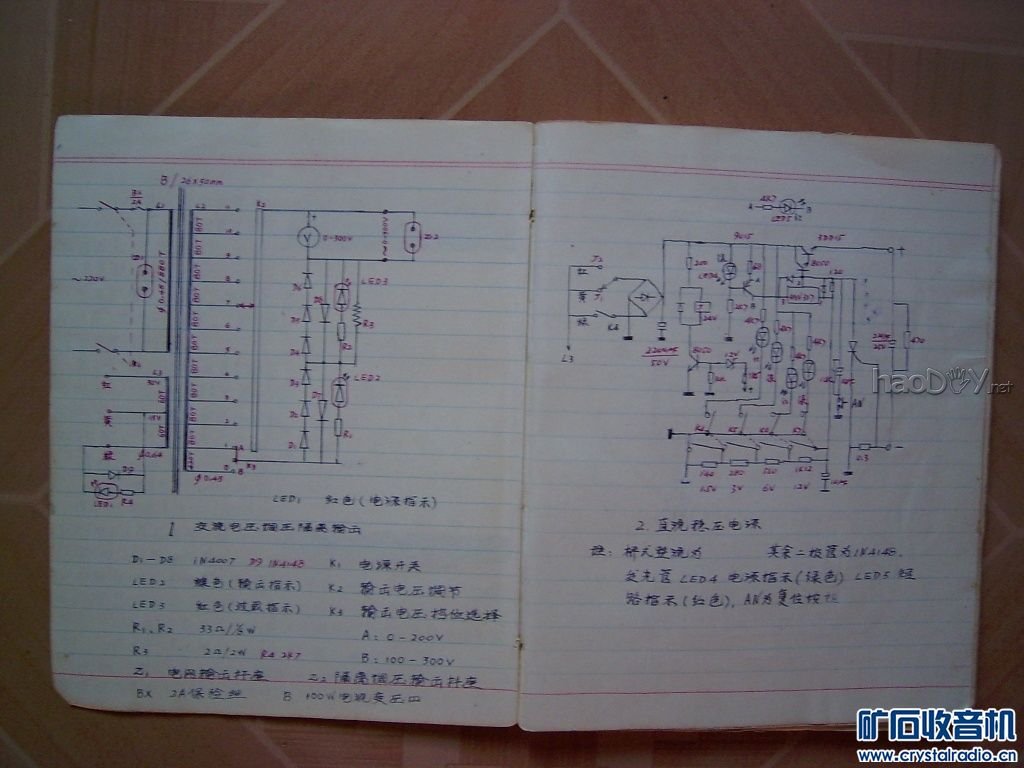 B / 26×50mm
BX
2A
L1
L2
K2
~220V
φ0.45/880T
80T
0~300V
Z2
LED3
LED2
R3
R2
R1
D6
D5
D4
D3
D2
D1
D8
D7
L3
30V
15V
60T
φ0.64
φ0.45
D9
R4
LED1
A
B
K3
LED1 红色(电源指示)
1 交流电压调压隔离输出
D1—D8 1N4007 D9 1N4148 K1 电源开关
LED2 绿色(输出指示) K2 输出电压调节
LED3 红色(过载指示) K3 输出电压档位选择
R1、R2 33Ω/½W A: 0-200V
R3 2Ω/2W R4 2K7 B: 100-300V
Z1 电网输出杆座 Z2 隔离调压输出杆座
BX 2A保险丝 B 100W电源变压口
4K7
A
B
LED5
9015
3DD15
8050
200
LED4
24V
2K7
120
红
黄
绿
J2
J1
K4
L3
2200μF
50V
8050
12V
470
AN
0.3
K5
K6
K7
1.5V 3V 6V 12V
2. 直流稳压电源
注: 桥式整流为 其余二极管为1N4148.
发光管 LED4 电源指示(绿色) LED5 短
路指示(红色), AN为复位按
haoDIY.net
矿石收音机
www.crystalradio.cn